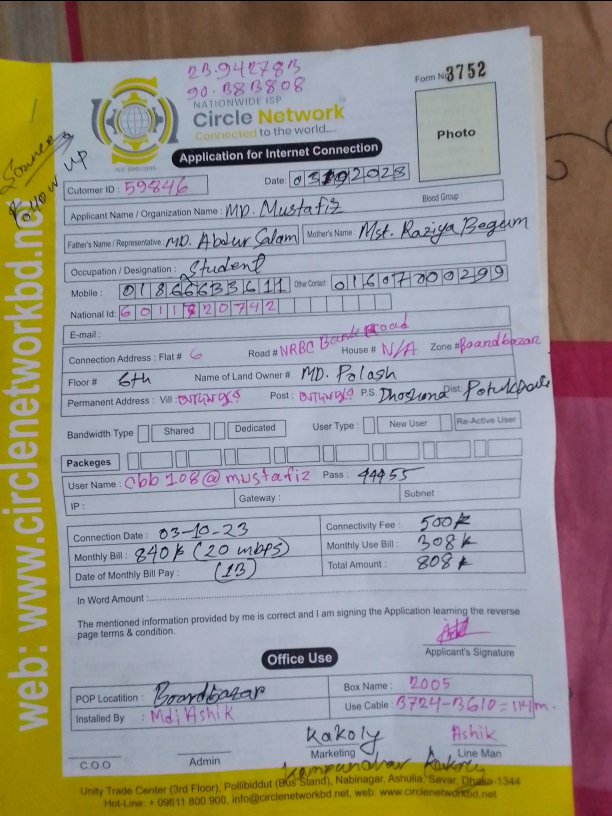 23.942783
90.383808
Form No 3752
NATIONWIDE ISP
Circle Network
Connected to the world.....
ISO 9001:2015
Photo
Application for Internet Connection
Follow UP
Cutomer ID : 59846
Date: 03102023
Applicant Name / Organization Name : MD. Mustafiz
Blood Group
Father's Name / Representative : MD. Abdur Salam
Mother's Name : Mst. Raziya Begum
Occupation / Designation : Student
Mobile : 01866633611
Other Contact 01607000299
National Id: 6011820742
E-mail :
Connection Address : Flat # 6
Road # NRBC Bank road
House # N/A
Zone # Boardbazar
Floor # 6th
Name of Land Owner # MD. Polash
Permanent Address : Vill
Post :
P.S.
Dist.
Bandwidth Type
Shared
Dedicated
User Type :
New User
Re-Active User
Packeges
User Name : cbb108@mustafiz
Pass : 44455
IP :
Gateway :
Subnet
Connection Date : 03-10-23
Connectivity Fee : 500k
Monthly Bill : 840k (20 mbps)
Monthly Use Bill : 308k
Date of Monthly Bill Pay : (13)
Total Amount : 808k
In Word Amount :
The mentioned information provided by me is correct and I am signing the Application learning the reverse
page terms & condition.
Applicant's Signature
Office Use
POP Locatition : Boardbazar
Box Name : 2005
Installed By : Md: Ashik
Use Cable : 3724-3610=114m.
Kakoly
Ashik
C.O.O
Admin
Marketing
Line Man
Unity Trade Center (3rd Floor), Pollibiddut (Bus Stand), Nabinagar, Ashulia, Savar, Dhaka-1344
Hot-Line: + 09611 800 900, info@circlenetworkbd.net, web: www.circlenetworkbd.net
web: www.circlenetworkbd.net